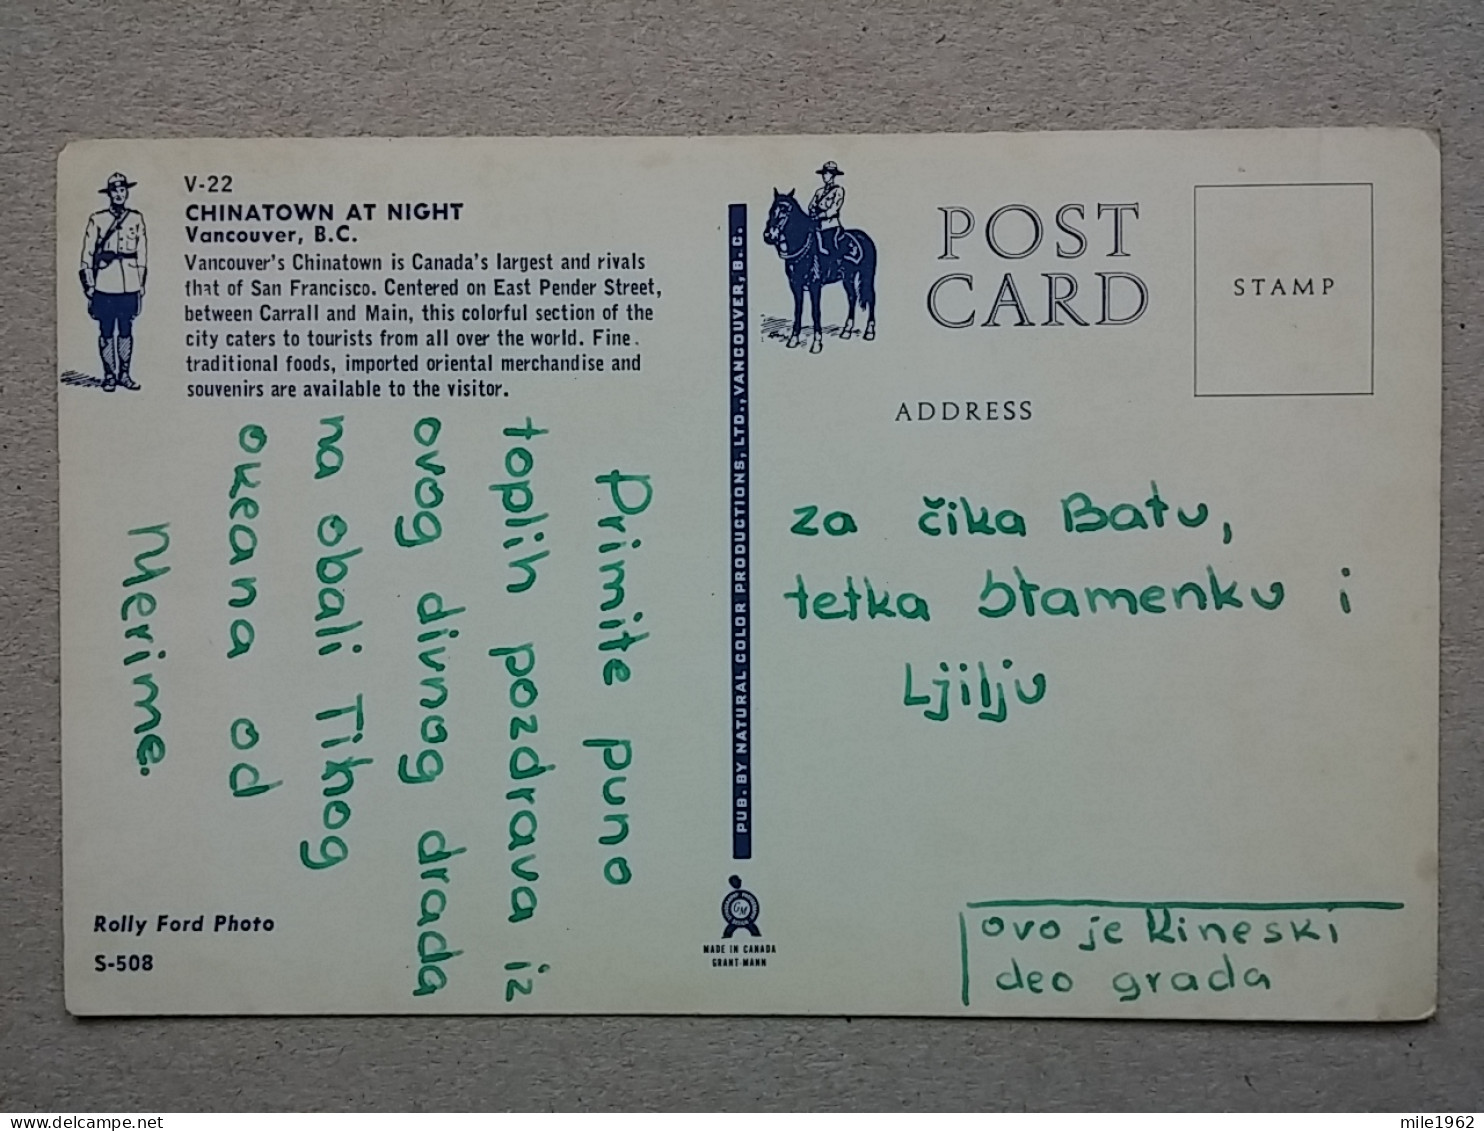 V-22
CHINATOWN AT NIGHT
Vancouver, B.C.
Vancouver's Chinatown is Canada's largest and rivals
that of San Francisco. Centered on East Pender Street,
between Carrall and Main, this colorful section of the
city caters to tourists from all over the world. Fine
traditional foods, imported oriental merchandise and
souvenirs are available to the visitor.
Primite puno
toplih pozdrava iz
ovog divnog drada
na obali Tihog
okeana od
Merime.
Rolly Ford Photo
S-508
PUB. BY NATURAL COLOR PRODUCTIONS, LTD., VANCOUVER, B.C.
GM
MADE IN CANADA
GRANT-MANN
POST
CARD
STAMP
ADDRESS
za čika Batu,
tetka Stamenku i
Ljilju
ovo je Kineski
deo grada
mile1962